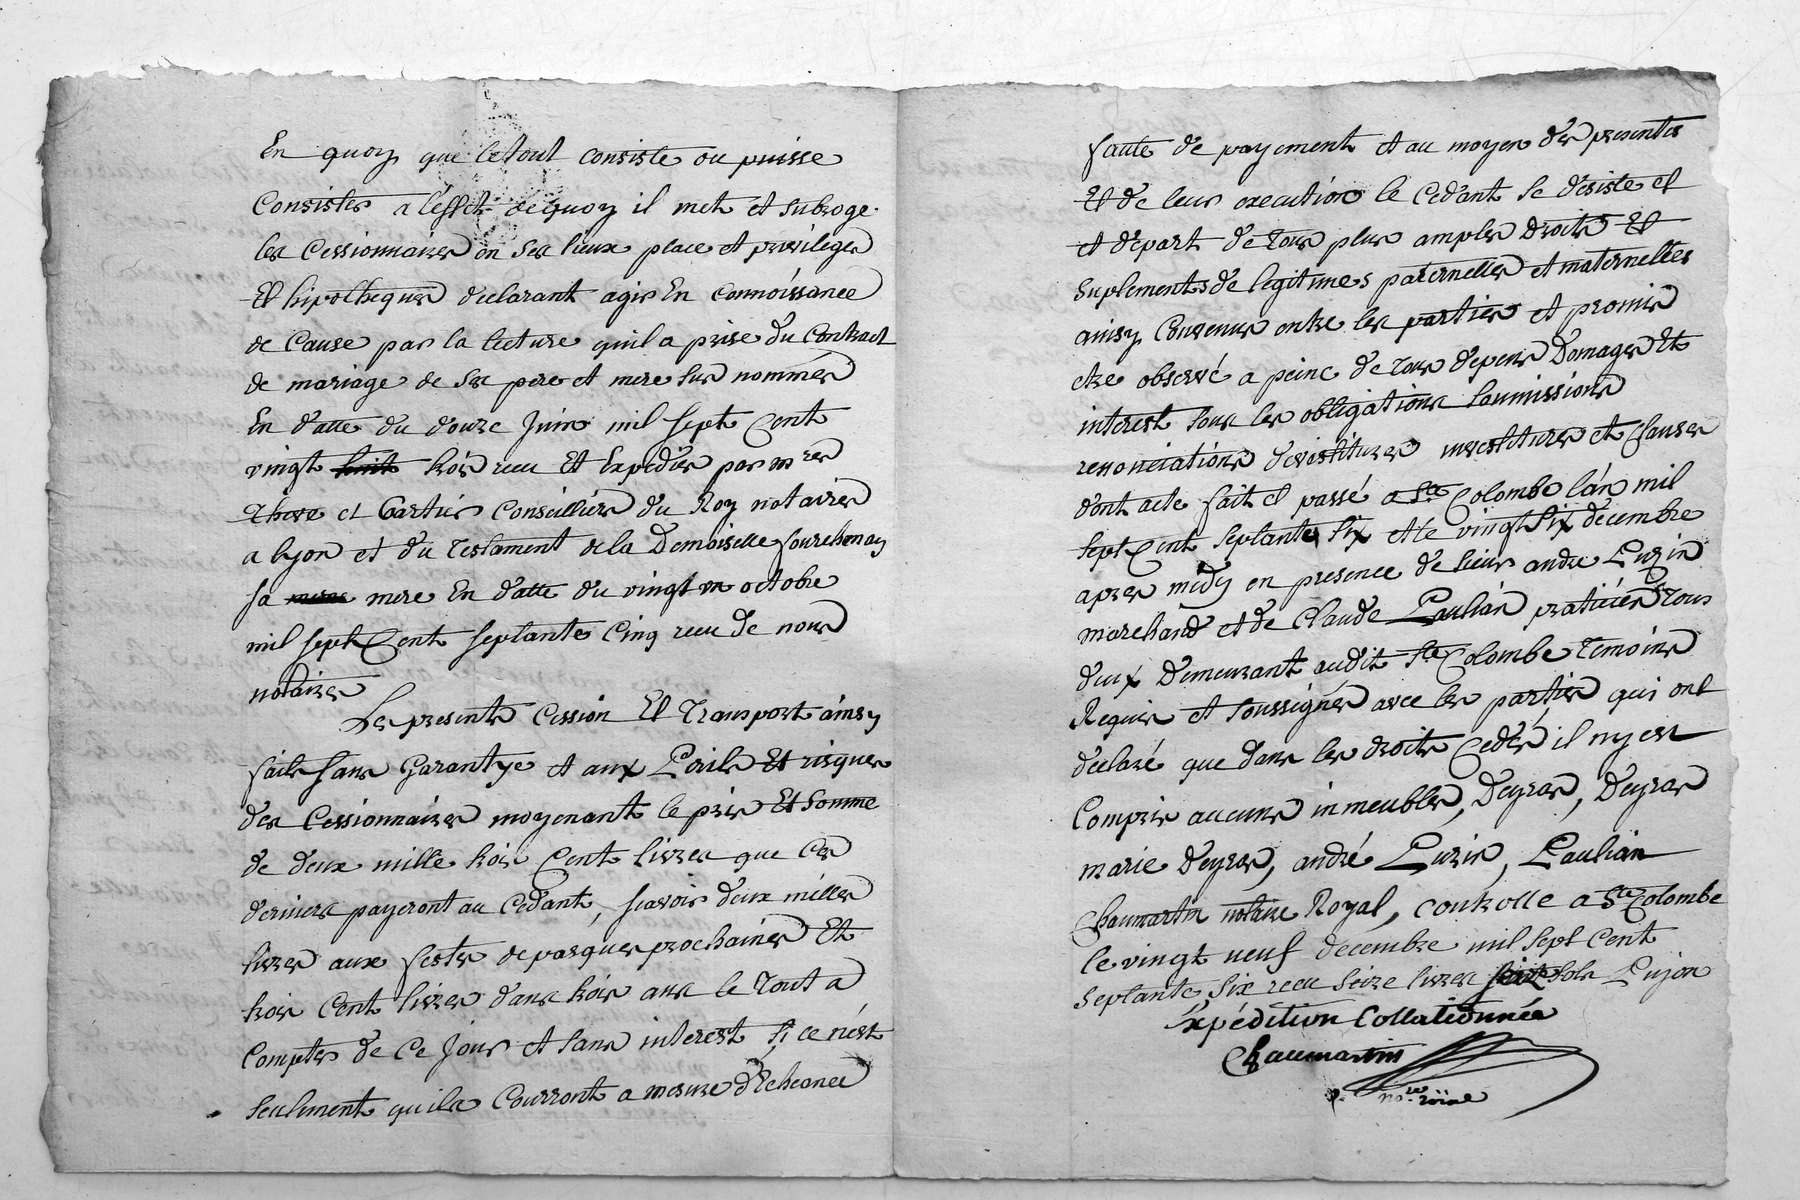 En quoy que le tout consiste ou puisse
Consister a l'effet de quoy il met et subroge
les Cessionnaires en ses lieux place et privileges
Et hipotheques declarant agir En connoissance
de Cause par la lecture quil a prise du Contract
de mariage de ses pere et mere sus nommés
En datte du douze Juin mil sept Cent
vingt huit trois recu Et Expedier par mres
et Cartier Conseilliers du Roy notaires
a lyon et du testament de la Demoiselle
sa mere En datte du vingt un octobre
mil sept Cent septante Cinq recu de nous
notaires
Les presente Cession Et Transport ainsy
faite sans Garantye et aux Perils Et risques
des Cessionnaires moyenant le prix Et Somme
de deux mille trois Cent livres que Ces
derniers payeront au Cedant, scavoir deux milles
livres aux festes de pasques prochaines Et
trois Cent livres dans trois ans le Tout a
Compter de Ce Jour et sans interest si ce n'est
seulement quils Courront a mesure d'Echeance
faute de payement et au moyen des presentes
Et de leur execution le Cedant se desiste et
et depart de tous plus amples Droits Et
suplements de legitimes paternelles et maternelles
ainsy Convenu entre les parties et promis
etre observé a peine de tous depens Domages Et
interest sous les obligations soumissions
renonciations devestitures investitures et Clauses
dont acte fait et passé a Ste Colombe lan mil
sept Cent septante six et le vingt six decembre
apres midy en presence de sieur andre Luzin
marchand et de Claude Paulian praticien tous
deux Demeurant audit Ste Colombe temoins
Requis et soussignes avec les parties qui ont
declaré que dans les droits Cedés il ny est
Compris aucuns inmeubles, Deyras, Deyras
marie Deyras, andré Luzin, Paulian
Chaumartin notaire Royal, controlle a Ste Colombe
le vingt neuf decembre mil sept Cent
septante six recu seize livres sols Pujon
Expédition Collationnée
Chaumartin
nore roial